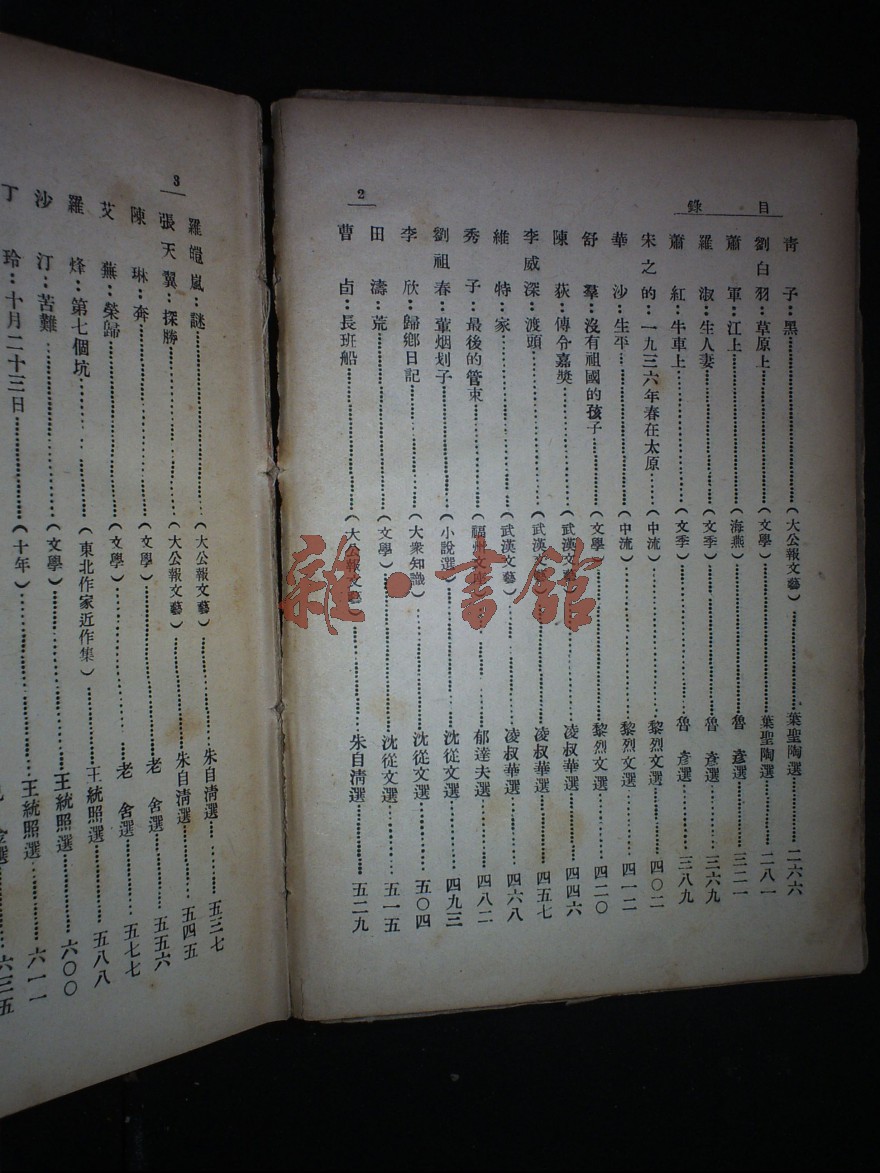 目錄
2
青子：黑……（大公報文藝）……葉聖陶選……二六六
劉白羽：草原上……（文學）……葉聖陶選……二八一
蕭軍：江上……（海燕）……魯彥選……三二一
羅淑：生人妻……（文季）……魯彥選……三六九
蕭紅：牛車上……（文季）……魯彥選……三八九
宋之的：一九三六年春在太原……（中流）……黎烈文選……四〇二
華沙：生平……（中流）……黎烈文選……四一二
舒羣：沒有祖國的孩子……（文學）……黎烈文選……四二〇
陳荻：傳令嘉獎……（武漢文藝）……凌叔華選……四四六
李威深：渡頭……（武漢文藝）……凌叔華選……四五七
維特：家……（武漢文藝）……凌叔華選……四六八
秀子：最後的管束……（福州文座）……郁達夫選……四八二
劉祖春：葷烟划子……（小說選）……沈從文選……四九三
李欣：歸鄉日記……（大衆知識）……沈從文選……五〇四
田濤：荒……（文學）……沈從文選……五一五
曹卣：長班船……（大公報文藝）……朱自清選……五二九
3
羅皚嵐：謎……（大公報文藝）……朱自清選……五三七
張天翼：探勝……（大公報文藝）……朱自清選……五四五
陳琳：奔……（文學）……老舍選……五五六
艾蕪：榮歸……（文學）……老舍選……五七七
羅烽：第七個坑……（東北作家近作集）……王統照選……五八八
沙汀：苦難……（文學）……王統照選……六〇〇
丁玲：十月二十三日……（十年）……王統照選……六一一
選……六三五
雜·書館